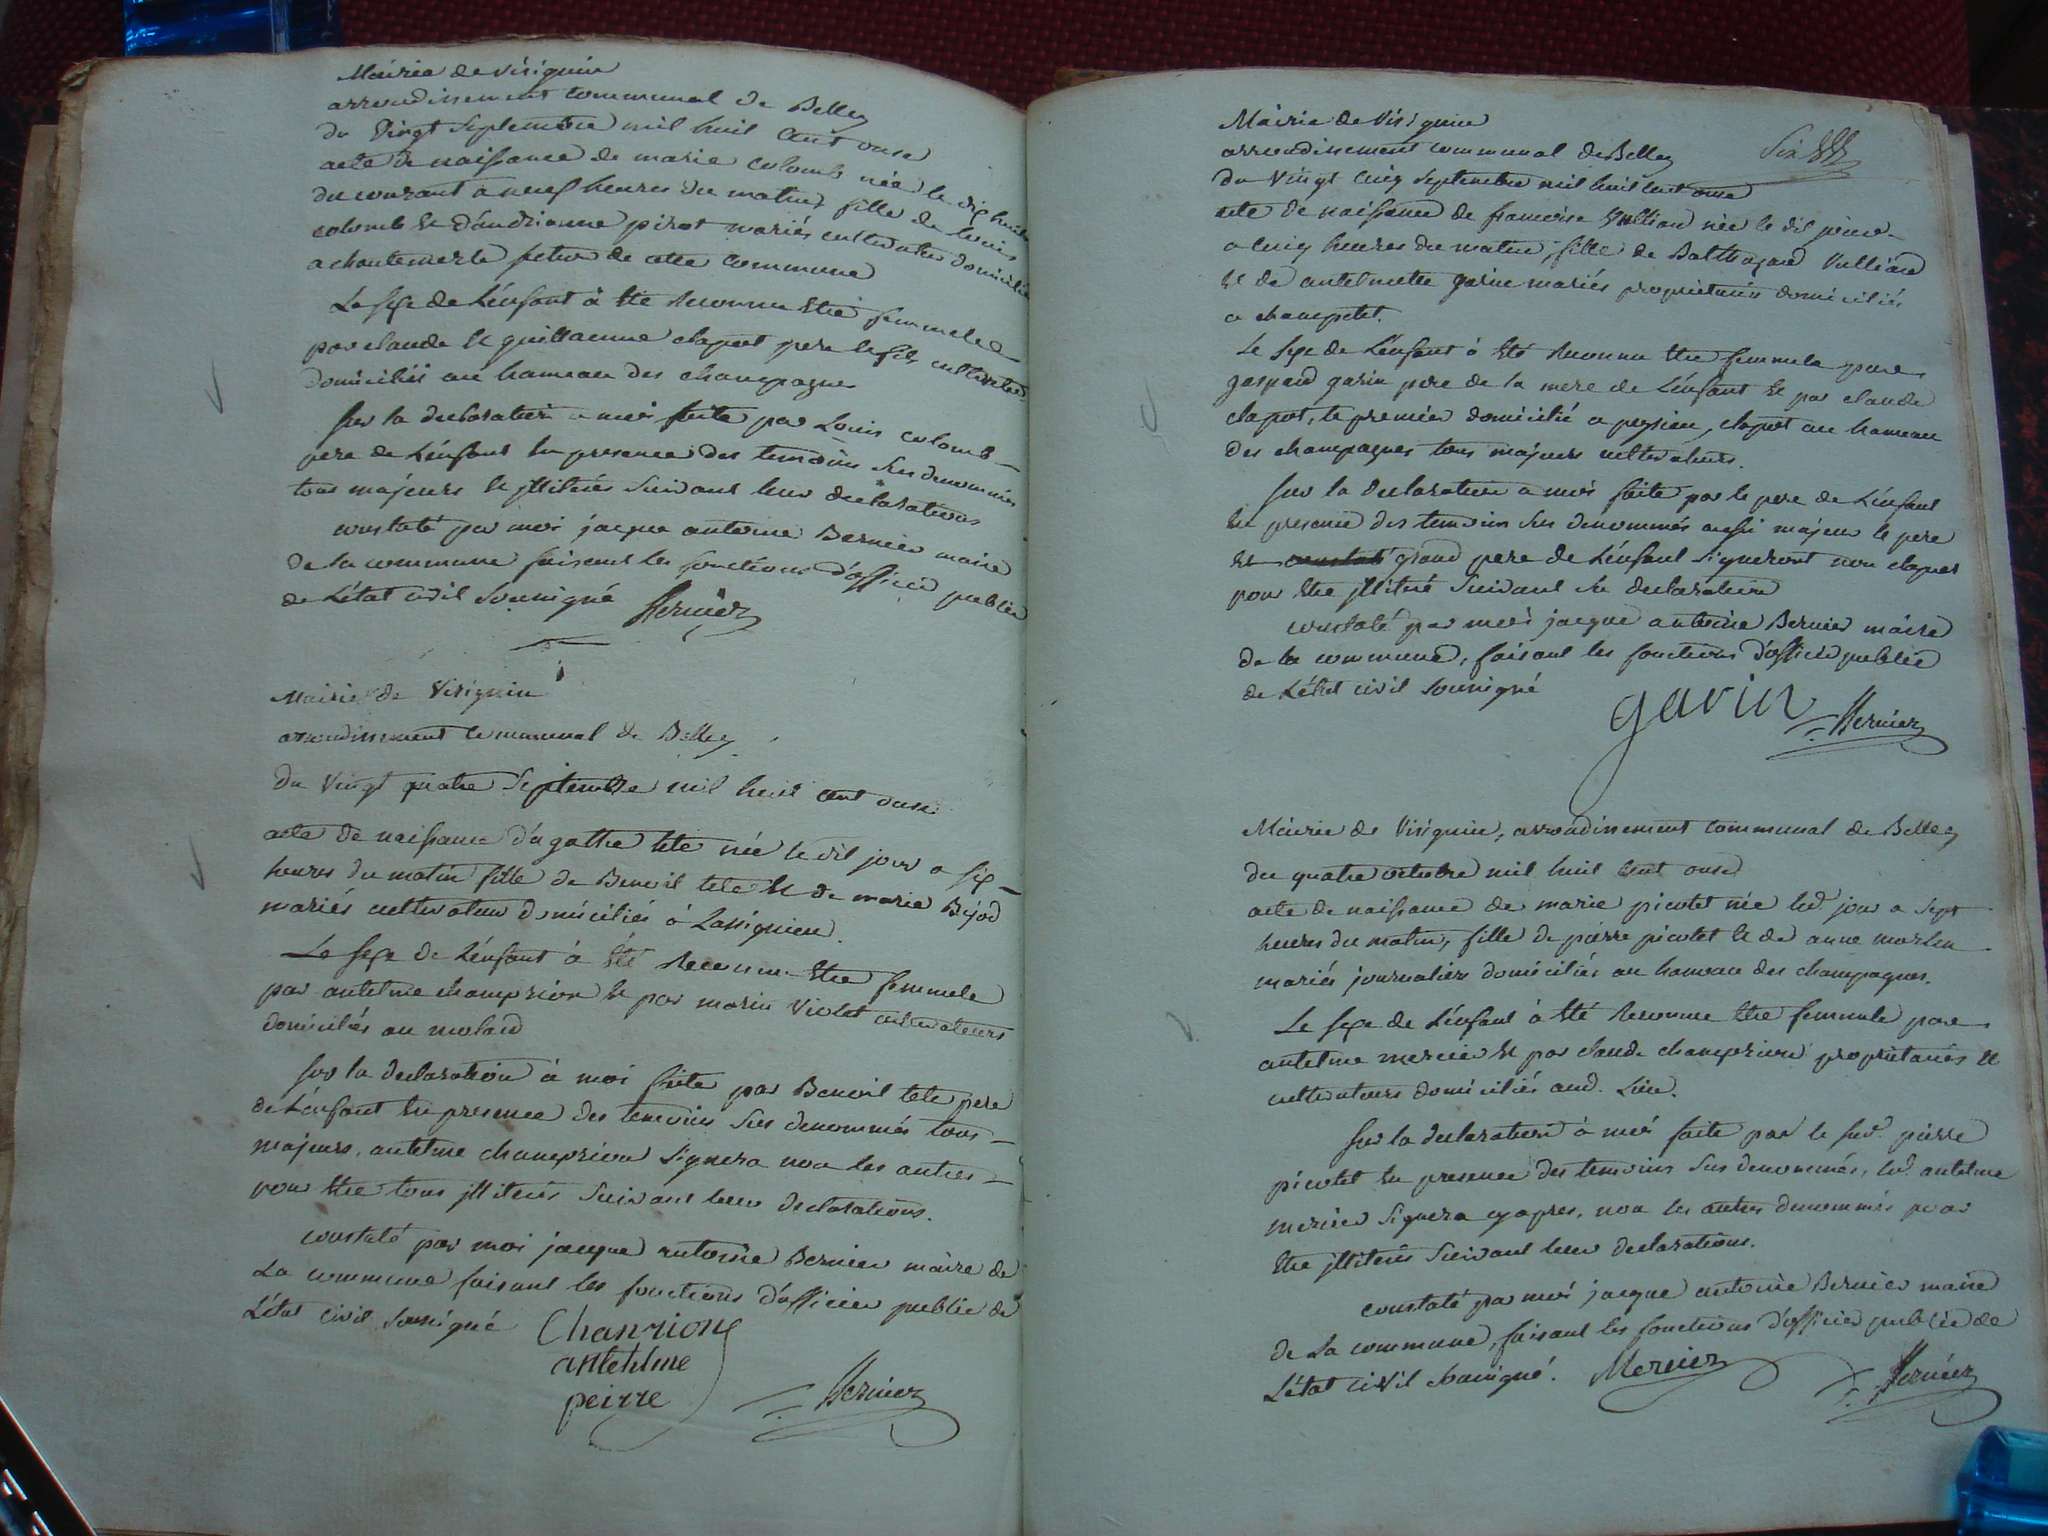 Mairie de Virignin
arrondissement communal de Belley
du Vingt Septembre mil huit Cent onse
acte de naissance de marie colomb née le dix huit
du courant a neuf heures du matin fille de Louis
colomb et d'andrianne pirot mariés cultivateurs domiciliés
a chantemerle section de cette Commune
Le sexe de L'enfant à été Reconnu être femmelle
par claude et guillaume clapot pere et fils cultivateurs
domiciliés au hameau des champagnes
sur la declaration a moi faite par Louis colomb
pere de L'enfant En presence des temoins sus denommés
tous majeurs et jllitérés suivant leur declarations
constaté par moi jacque antoine Bernier maire
de la commune faisant les fonctions d'officier public
de L'état civil soussigné Bernier
Mairie de Virignin
arrondissement communal de Belley
du Vingt quatre Septembre mil huit cent onse
acte de naissance d'agathe tete née le dit jour a six
heures du matin fille de Benoit tete et de marie Bejod
mariés cultivateurs domiciliés à Lassignieu
Le sexe de L'énfant à été Reconnu être femmele
par antelme champrion et par marin Violet cultivateurs
domiciliés au molard
sur la declaration à moi faite par Benoit tete pere
de L'énfant En presence des temoins sus denommés tous
majeurs, antelme champrion signera non les autres
pour être tous jlliterés suivant leur declarations.
constaté par moi jacque antoine Bernier maire de
La commune faisant les fonctions d'officier public de
L'état civil soussigné Chanrion
antehlme
peirre Bernier
Mairie de Virignin
arrondissement communal de Belley
du Vingt cinq septembre mil huit cent onse
acte de naissance de francoise Vullian née le dit jour
a cinq heures du matin, fille de Balthazard Vulliand
et de antelmette garin mariés propriétaires domiciliés
a champetel.
Le sexe de L'énfant à été Reconnu être femmele par
gaspard garin pere de la mere de L'énfant et par claude
clapot, le premier domicilié a peyzieu, clapot au hameau
des champagnes tous majeurs cultivateurs.
sur la declaration a moi faite par le pere de L'énfant
En presence des temoins sus denommés aussi majeur le pere
et constaté grand pere de L'énfant signeront non clapot
pour être jlliteré suivant sa declaration
constaté par moi jacque antoine Bernier maire
de la commune, faisant les fonctions d'officier public
de L'état civil soussigné
garin Bernier
Mairie de Virignin, arrondissement communal de Belley
du quatre octobre mil huit cent onse
acte de naissance de marie picotet née led. jour a sept
heures du matin, fille de pierre picotet et de anne martin
mariés journaliers domiciliés au hameau des champagnes.
Le sexe de L'énfant à été Reconnu être femmele par
antelme mercier et par claude champrion propriétaires et
cultivateurs domiciliés aud. Lieu.
sur la declaration à moi faite par le sud. pierre
picotet En presence des temoins sus denommés, led. antelme
mercier signera cyapres, non les autres denommés pour
être jlliterés suivant leur declarations.
constaté par moi jacque antoine Bernier maire
de La commune, faisant les fonctions d'officier public de
L'état civil soussigné. Mercier Bernier